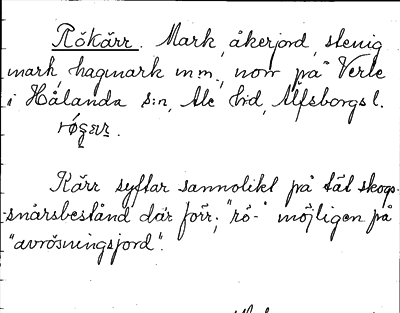 Rökärr. Mark, åkerjord, stenig
mark, hagmark m.m., norr på Verle
i Hålanda s:n, Ale hd, Älfsborgs l.
røgær.
Kärr syftar sannolikt på tät skogs-
snårsbestånd där förr; "rö-" möjligen på
"avrösningsjord".